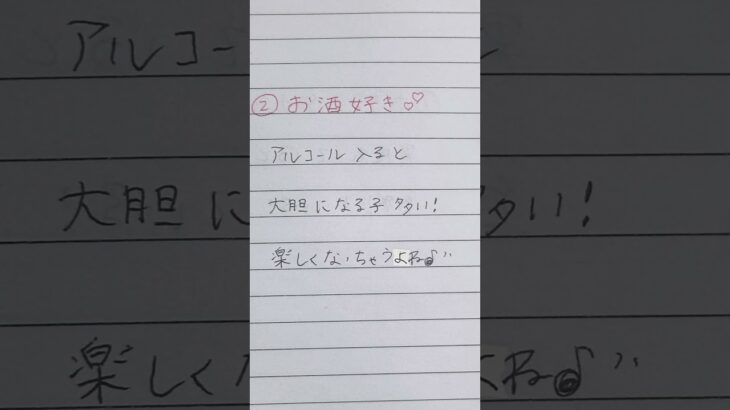 ② お酒好き♡♡
アルコール入ると
大胆になる子多い!
楽しくなっちゃうよね♪''